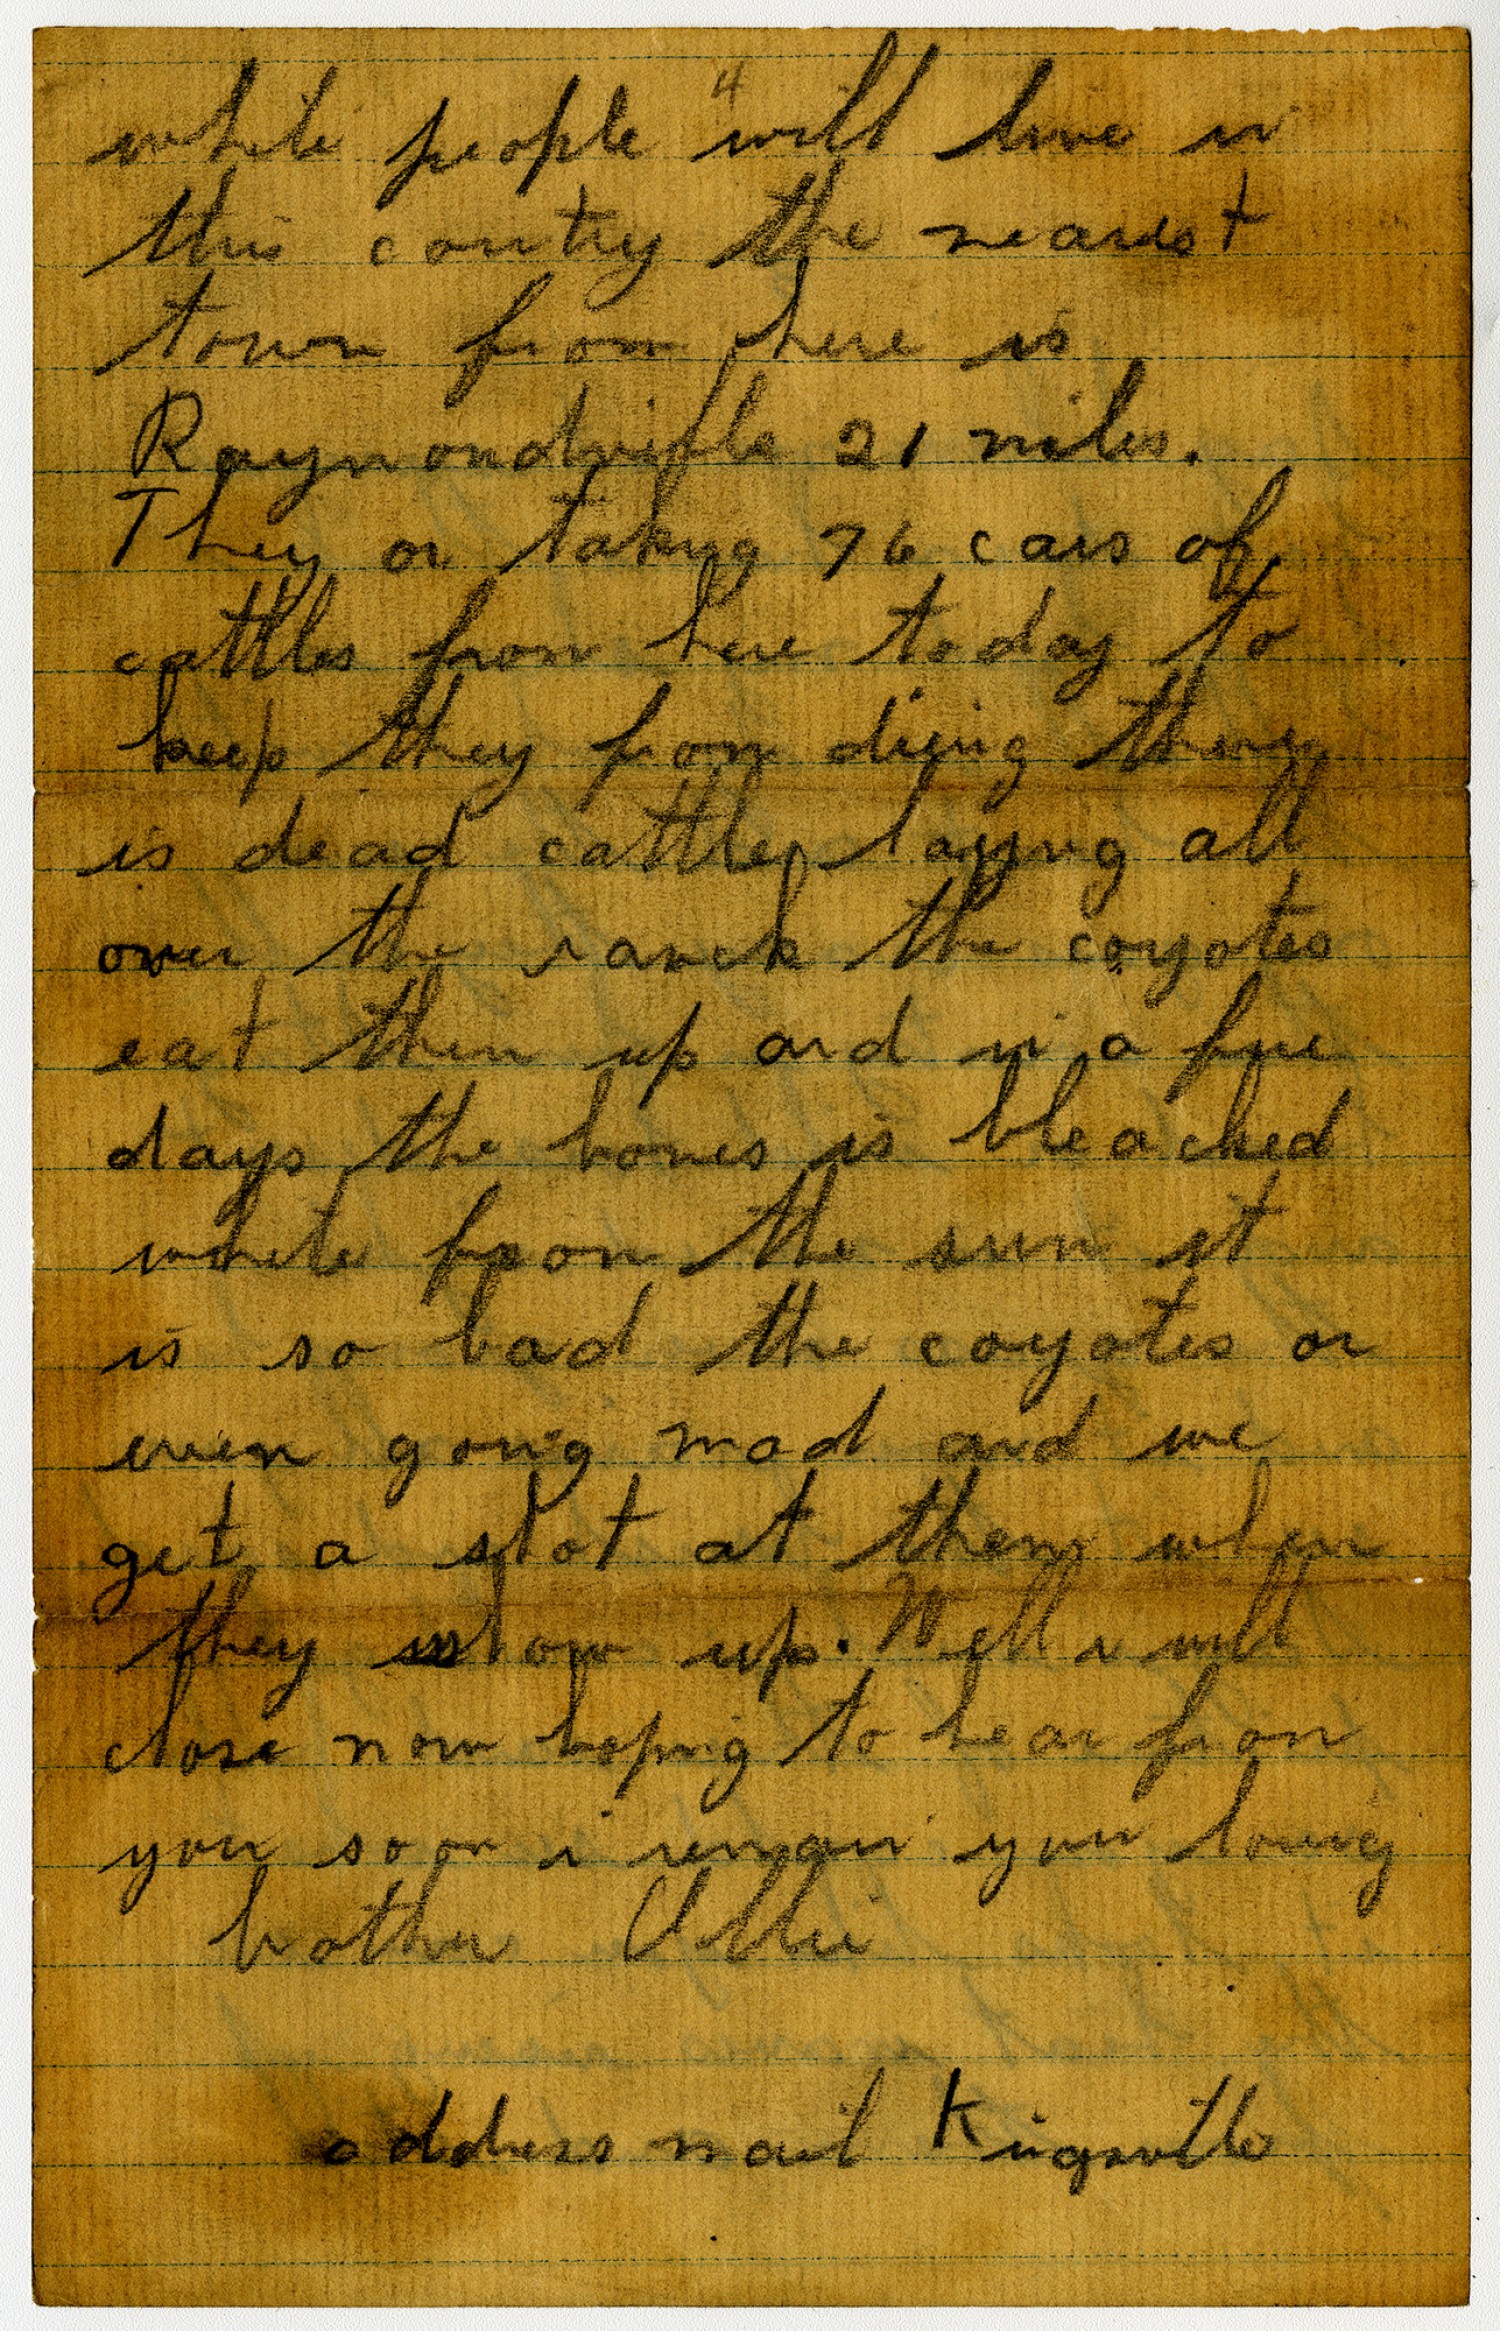 4
white people will live in
this contry the nearest
town from here is
Raymondville 21 miles.
They or taking 76 cars of
cattles from here today to
keep they from dieing there
is dead cattle laying all
over the ranch the coyotes
eat them up and in a fue
days the bones is bleached
white from the sun it
is so bad the coyotes or
even going mad and we
get a shot at them when
they show up. Well i will
close now hoping to hear from
you soon i remain your loving
brother Ollie
address mail Kingsville